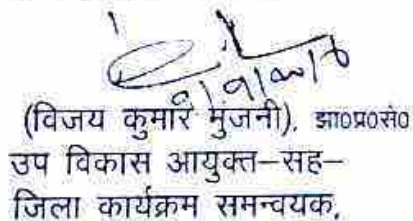 (विजय कुमार मुंजनी), झा०प्र०से०
उप विकास आयुक्त–सह–
जिला कार्यक्रम समन्वयक,